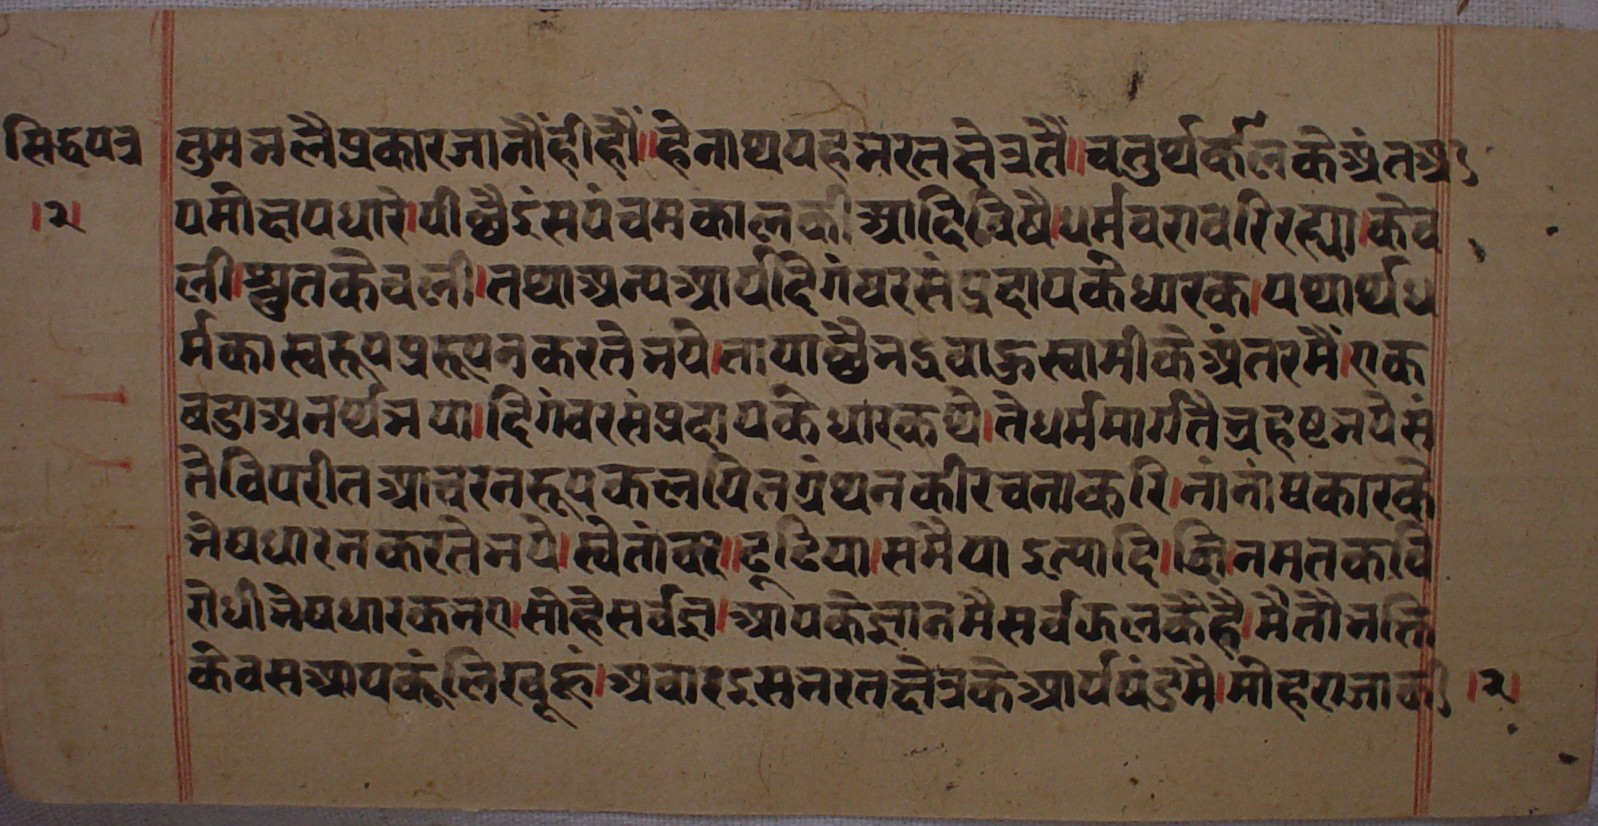 सिद्धपत्र
।२।
तुमभलैप्रकारजानौंहीहौं॥हेनाथयहभरतक्षेत्रतैं॥चतुर्थकालकेअंतआ
पमोक्षपधारे।पीछैइंसपंचमकालकीआदिविषै।धर्मवरावरिरह्या।केव
ली।श्रुतकेवली।तथाअन्यआर्यदिगंवरसंप्रदायकेधारक।यथार्थध
र्मकास्वरूपप्ररूपनकरतेभये।तापाछैभद्रवाऊस्वामीकेअंतरमैं।एक
वडाअनर्थभया।दिगंवरसंप्रदायकेधारकथे।तेधर्ममार्गतैभ्रहष्टभयेसं
तेविपरीतआचरनरूपकलपितग्रंथनकीरचनाकरि।नांनांप्रकारके
भेषधारनकरतेभये।स्वेतांवर॥ढूढिया।समैया।इत्यादि।जिनमतकेवि
रोधीभेषधारकभए।सोहेसर्वज्ञ।आपकेज्ञानमैसर्वऊलकैहै।मैतौभक्ति
केवसआपकूंलिखूहूं।अवारइसभरतक्षेत्रकेआर्यषंडमै।मोहराजाकी
।२।